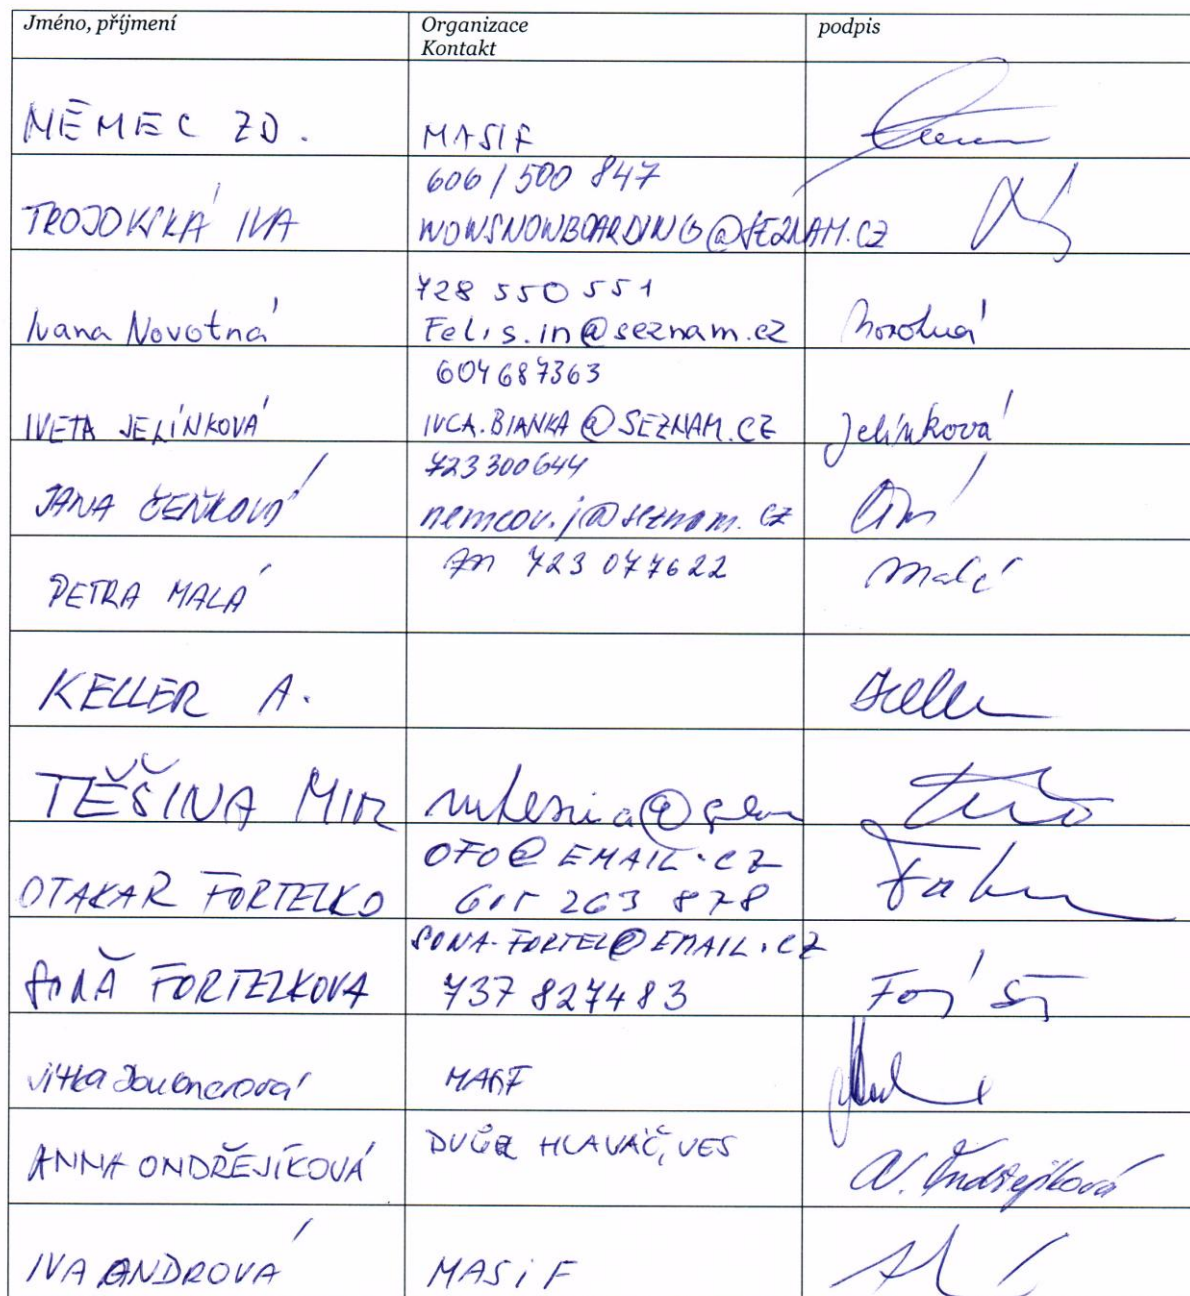 Jméno, příjmení
Organizace
Kontakt
podpis
NĚMEC ZD.
MASIF
TROJOVSKÁ IVA
606/500 847
WOWSNOWBOARDING@SEZNAM.CZ
Ivana Novotná
728 550 551
Felis.in@seznam.cz
Novotná
IVETA JELÍNKOVÁ
604687363
IVCA.BIANKA@SEZNAM.CZ
Jelínková
JANA ČEŇKOVÁ
723300644
nemcov.j@seznam.cz
PETRA MALÁ
723 077622
Malá
KELLER A.
Keller
TĚŠINA MIR
OTAKAR FORTELKO
OFO@EMAIL.CZ
615 263 878
SOŇA FORTELKOVA
SONA-FORTEL@EMAIL.CZ
737 827483
Jitka Doubnerová
MASIF
ANNA ONDŘEJÍKOVÁ
DVŮR HLAVAČ, VES
A. Ondřejíková
IVA ANDROVÁ
MASiF